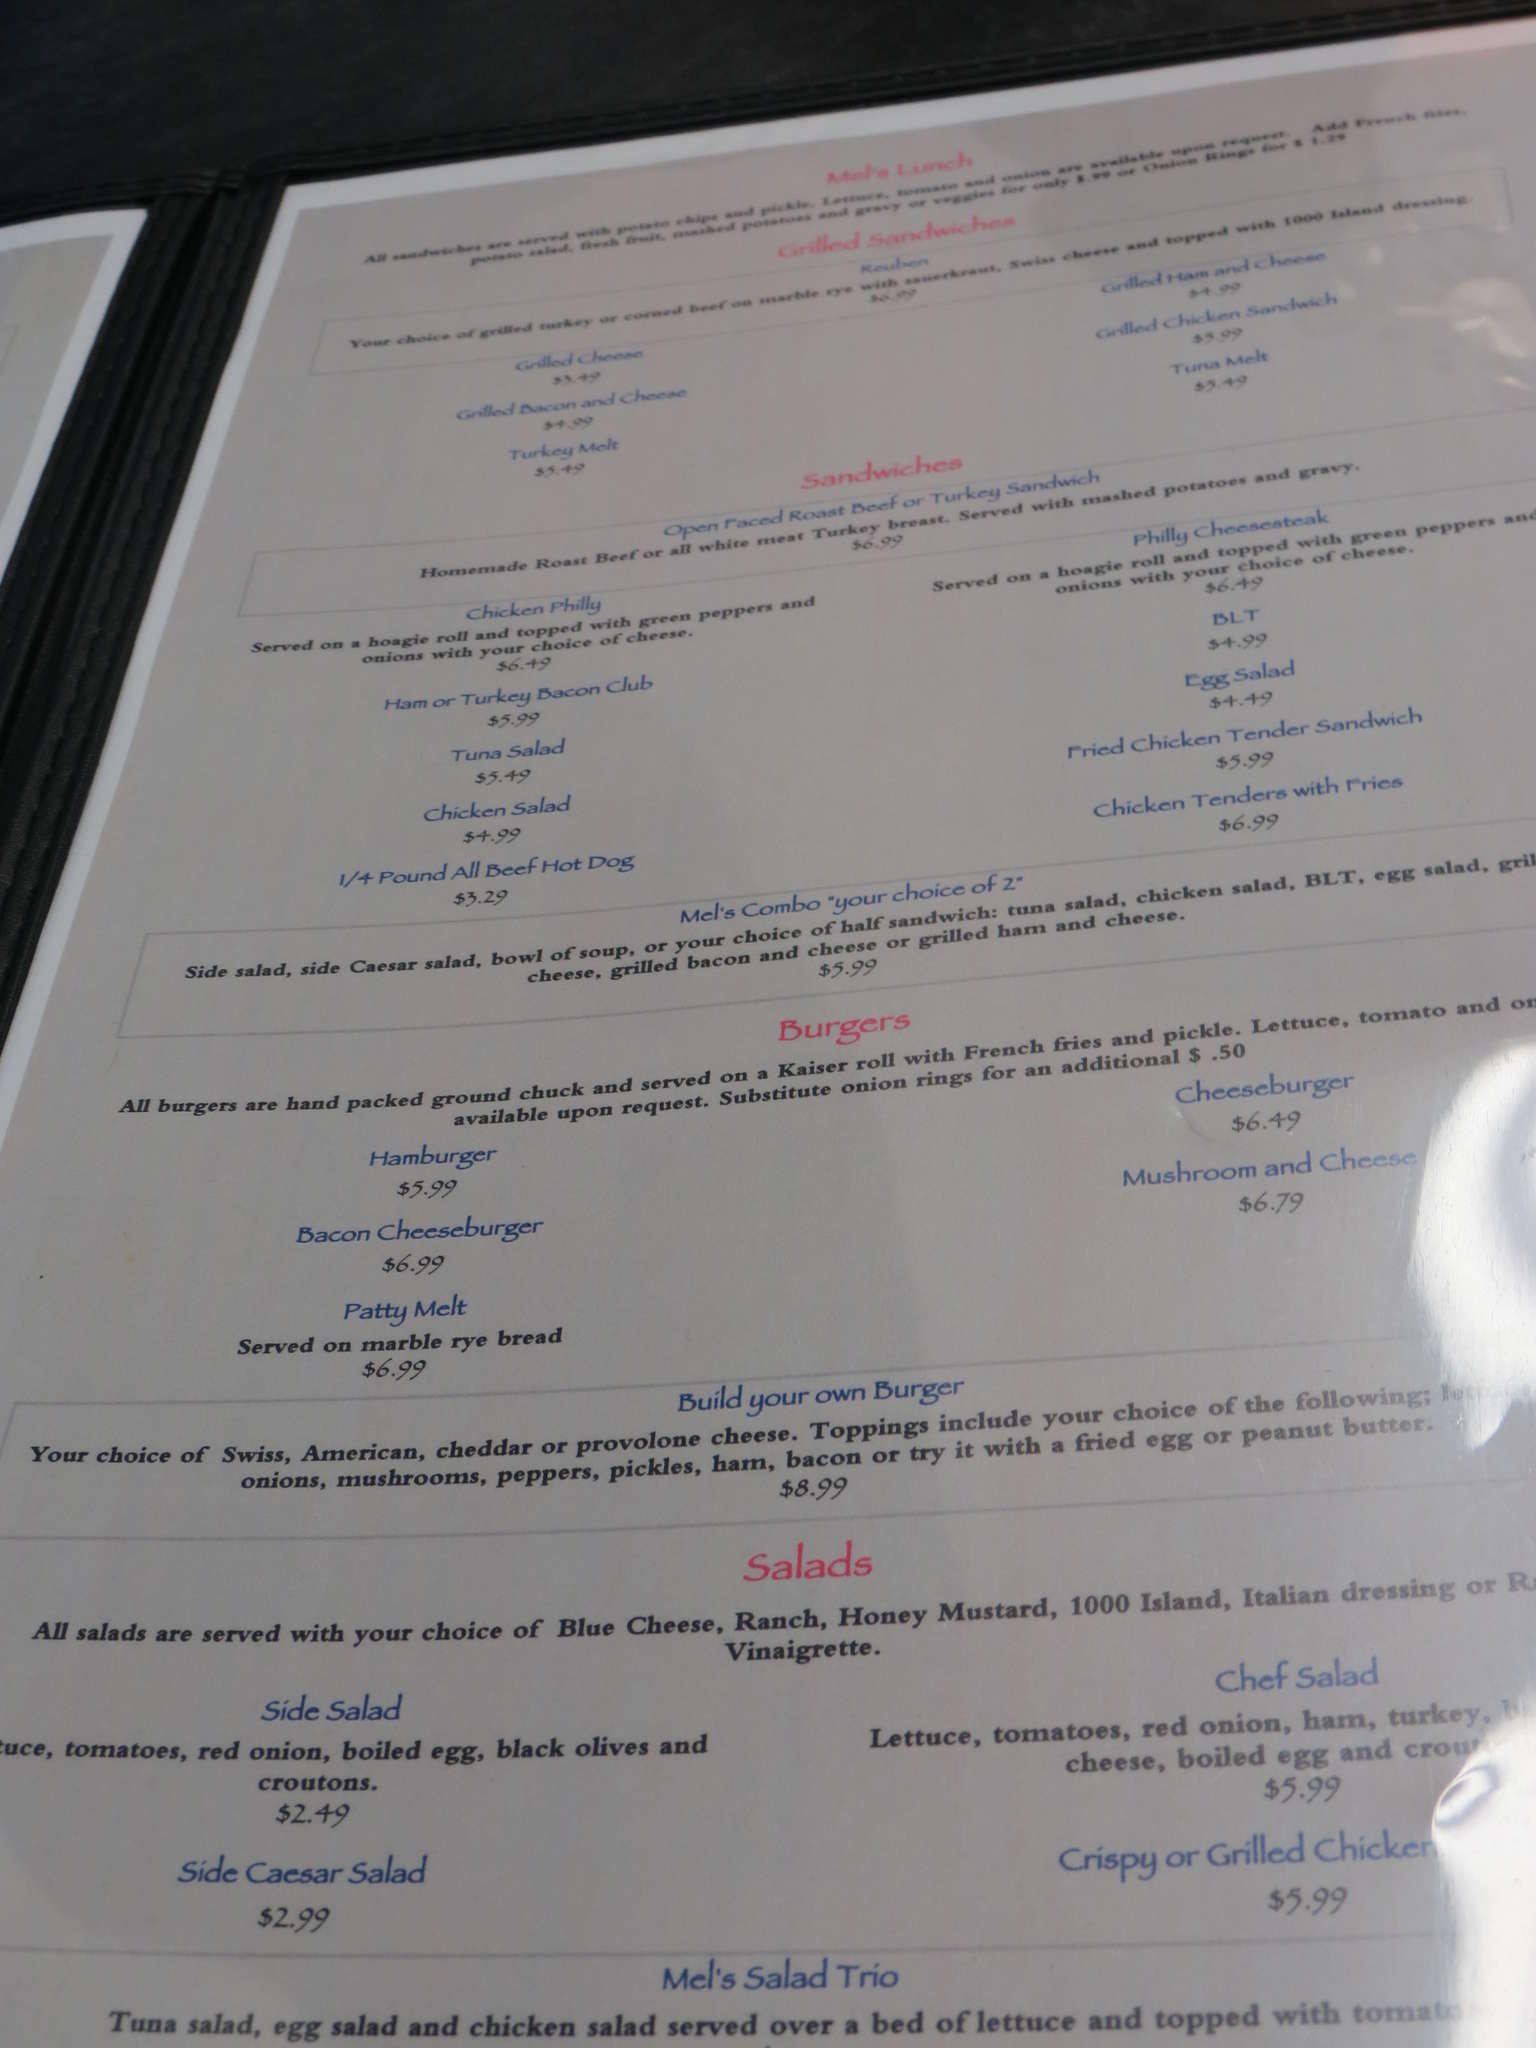 Mel's Lunch
All sandwiches are served with potato chips and pickle. Lettuce, tomato and onion are available upon request. Add French fries,
potato salad, fresh fruit, mashed potatoes and gravy or veggies for only $.99 or Onion Rings for $ 1.29
Grilled Sandwiches
Reuben
Your choice of grilled turkey or corned beef on marble rye with sauerkraut, Swiss cheese and topped with 1000 Island dressing.
$6.99
Grilled Cheese
$3.49
Grilled Bacon and Cheese
$4.99
Turkey Melt
$5.49
Grilled Ham and Cheese
$4.99
Grilled Chicken Sandwich
$5.99
Tuna Melt
$5.49
Sandwiches
Open Faced Roast Beef or Turkey Sandwich
Homemade Roast Beef or all white meat Turkey breast. Served with mashed potatoes and gravy.
$6.99
Chicken Philly
Served on a hoagie roll and topped with green peppers and
onions with your choice of cheese.
$6.49
Ham or Turkey Bacon Club
$5.99
Tuna Salad
$5.49
Chicken Salad
$4.99
1/4 Pound All Beef Hot Dog
$3.29
Philly Cheesesteak
Served on a hoagie roll and topped with green peppers and
onions with your choice of cheese.
$6.49
BLT
$4.99
Egg Salad
$4.49
Fried Chicken Tender Sandwich
$5.99
Chicken Tenders with Fries
$6.99
Mel's Combo "your choice of 2"
Side salad, side Caesar salad, bowl of soup, or your choice of half sandwich: tuna salad, chicken salad, BLT, egg salad, gril
cheese, grilled bacon and cheese or grilled ham and cheese.
$5.99
Burgers
All burgers are hand packed ground chuck and served on a Kaiser roll with French fries and pickle. Lettuce, tomato and on
available upon request. Substitute onion rings for an additional $ .50
Hamburger
$5.99
Bacon Cheeseburger
$6.99
Patty Melt
Served on marble rye bread
$6.99
Cheeseburger
$6.49
Mushroom and Cheese
$6.79
Build your own Burger
Your choice of Swiss, American, cheddar or provolone cheese. Toppings include your choice of the following;
onions, mushrooms, peppers, pickles, ham, bacon or try it with a fried egg or peanut butter.
$8.99
Salads
All salads are served with your choice of Blue Cheese, Ranch, Honey Mustard, 1000 Island, Italian dressing or Ra
Vinaigrette.
Side Salad
tuce, tomatoes, red onion, boiled egg, black olives and
croutons.
$2.49
Side Caesar Salad
$2.99
Chef Salad
Lettuce, tomatoes, red onion, ham, turkey,
cheese, boiled egg and crou
$5.99
Crispy or Grilled Chicken
$5.99
Mel's Salad Trio
Tuna salad, egg salad and chicken salad served over a bed of lettuce and topped with tomato